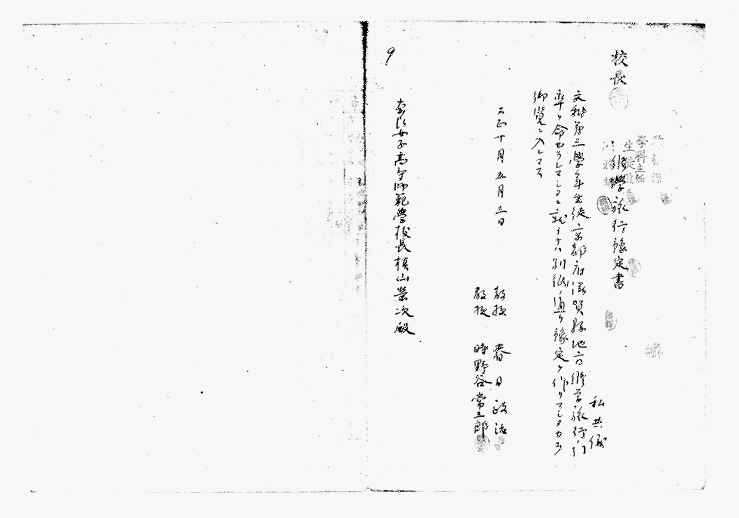 校長
修學旅行豫定書
私共儀
文科第三學年生徒京都府滋賀縣地方修学旅行
率ヲ命セラレマシタニ就イテハ別紙ノ通リ豫定ヲ作リマシタカラ
御覧ニ入レマス
大正十年五月三日
教授 春日政治
教授 時野谷常三郎
奈良女子高等師範學校長槇山榮次殿
9